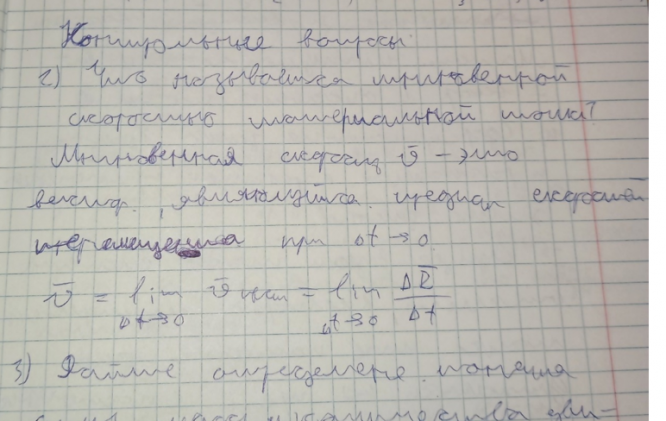 Контрольные вопросы
2) Что называется мгновенной
скоростью материальной точки?
Мгновенная скорость v̄ – это
вектор, являющийся предел скоростей
перемещения при Δt→0
v̄ = lim v̄ = lim ΔR̄/Δt
Δt→0 Δt→0
3) Дайте определене понятия
масса